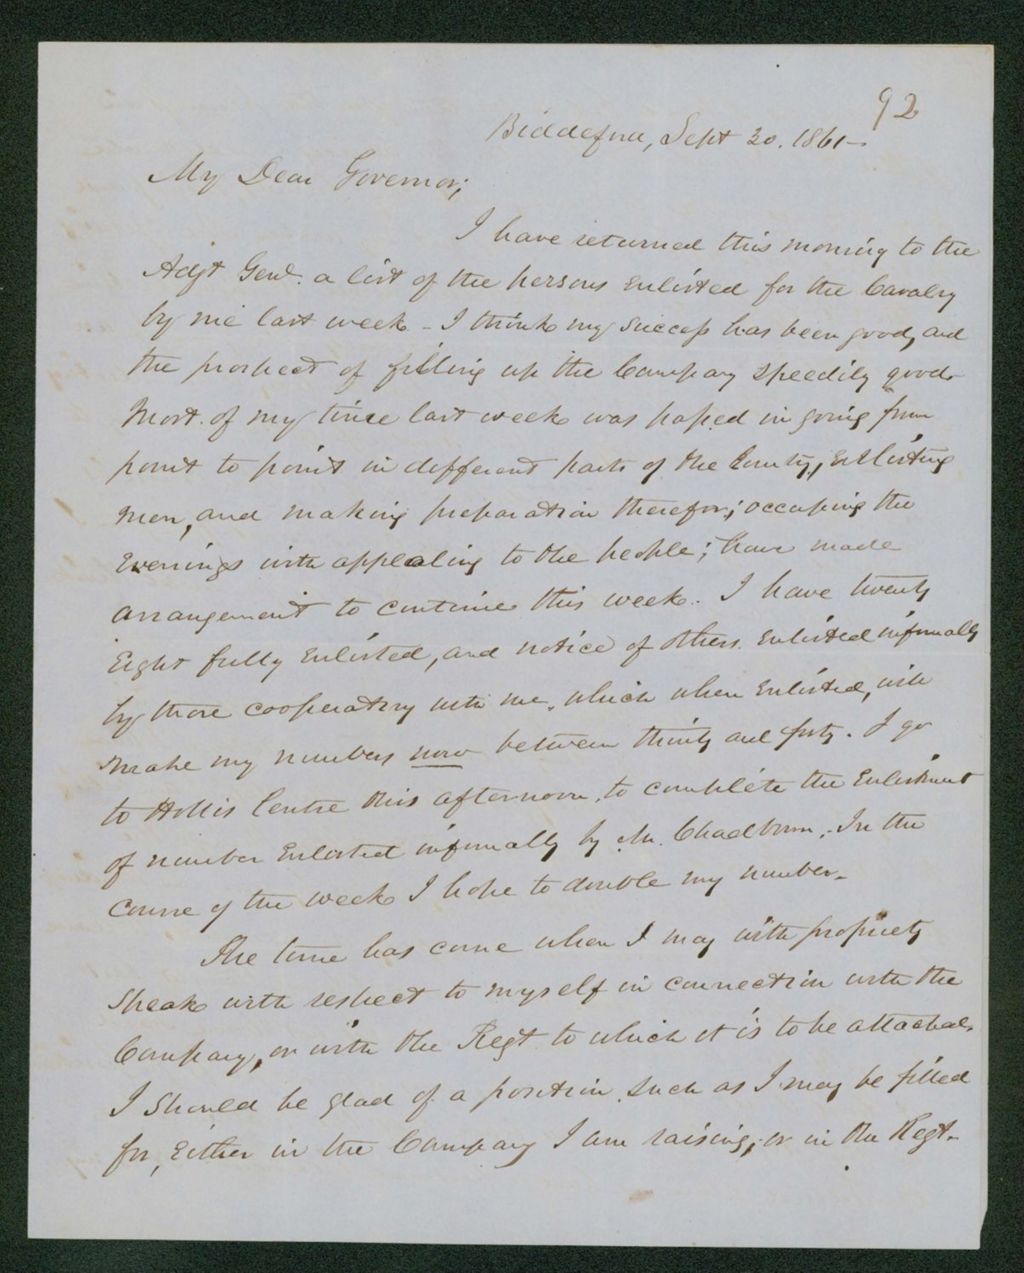 92
Biddeford, Sept 30. 1861-
My Dear Governor;
I have returned this morning to the
Adjt Genl. a list of the persons enlisted for the Cavalry
by me last week - I think my success has been good, and
the prospect of filling up the Company speedily good.
Most. of my time last week was passed in going from
point to point in different parts of the County, Enlisting
men, and making preparation therefor; occupying the
Evenings with appealing to the people; have made
arrangement to continue this week. I have twenty
Eight fully enlisted, and notice of others Enlisted informally
by those cooperating with me, which when Enlisted, will
make my numbers now between thirty and forty. I go
to Hollis Centre this afternoon, to complete the Enlistment
of number Enlisted informally by Mr. Chadbourn. In the
course of the week I hope to double my number.
The time has come when I may with propriety
speak with respect to myself in connection with the
Company, or with the Regt to which it is to be attached.
I should be glad of a position such as I may be fitted
for, Either in the Company I am raising, or in the Regt-